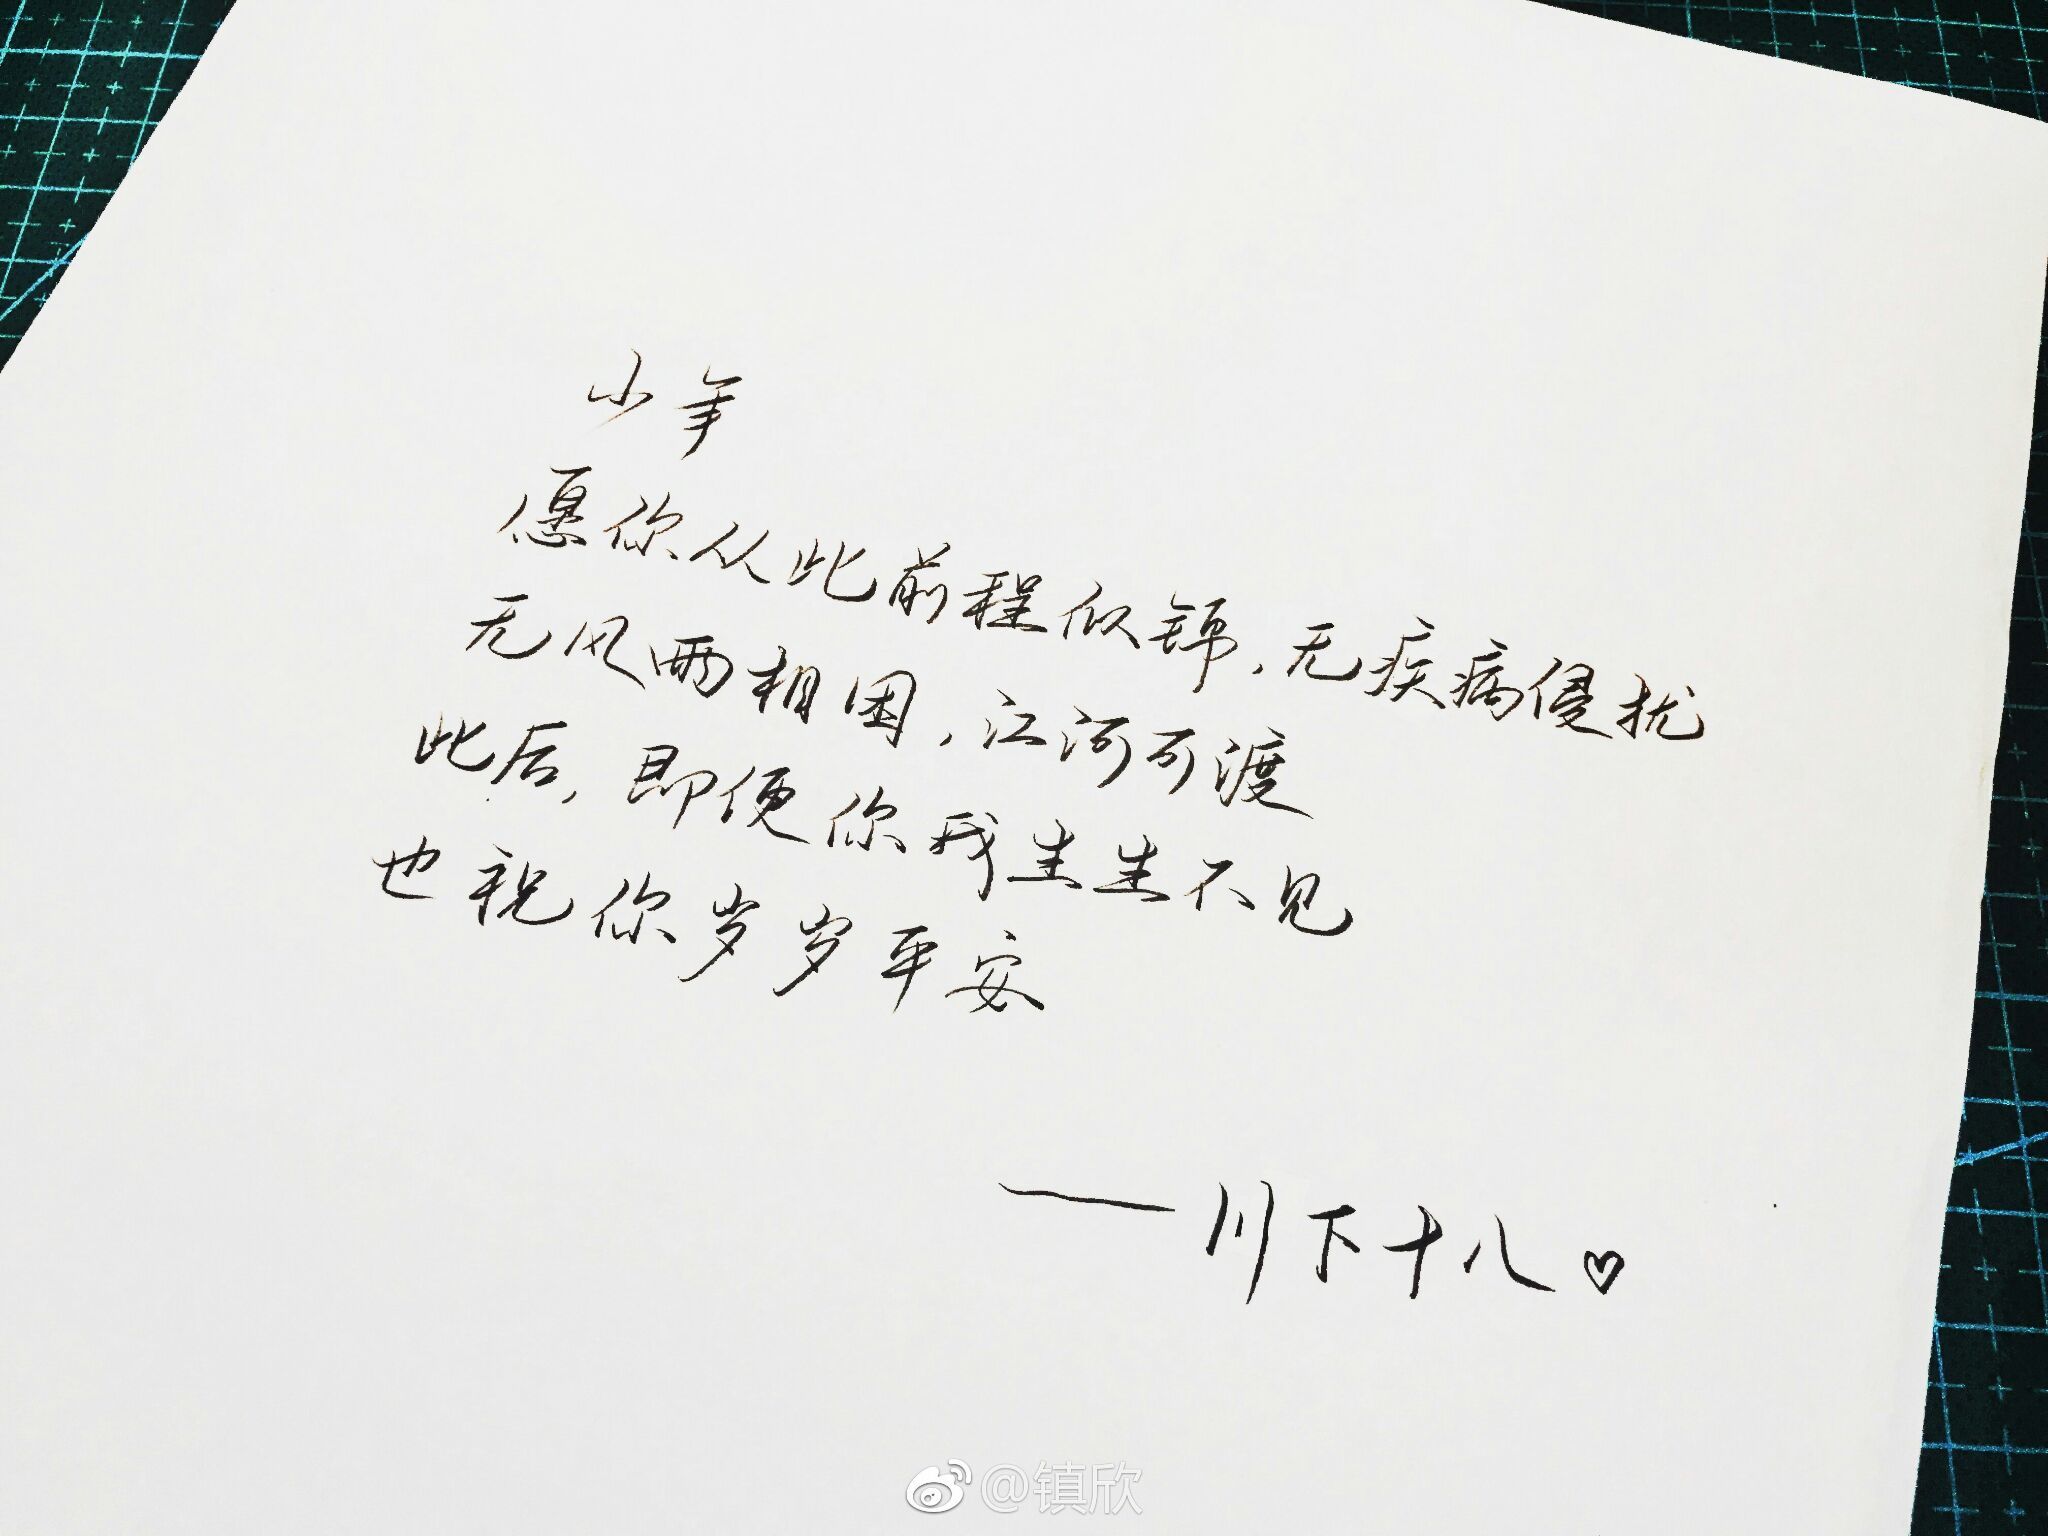 少年
愿你从此前程似锦，无疾病侵扰
无风雨相困，江河可渡
此后，即便你我生生不见
也祝你岁岁平安
——川下十八♡
@镇欣